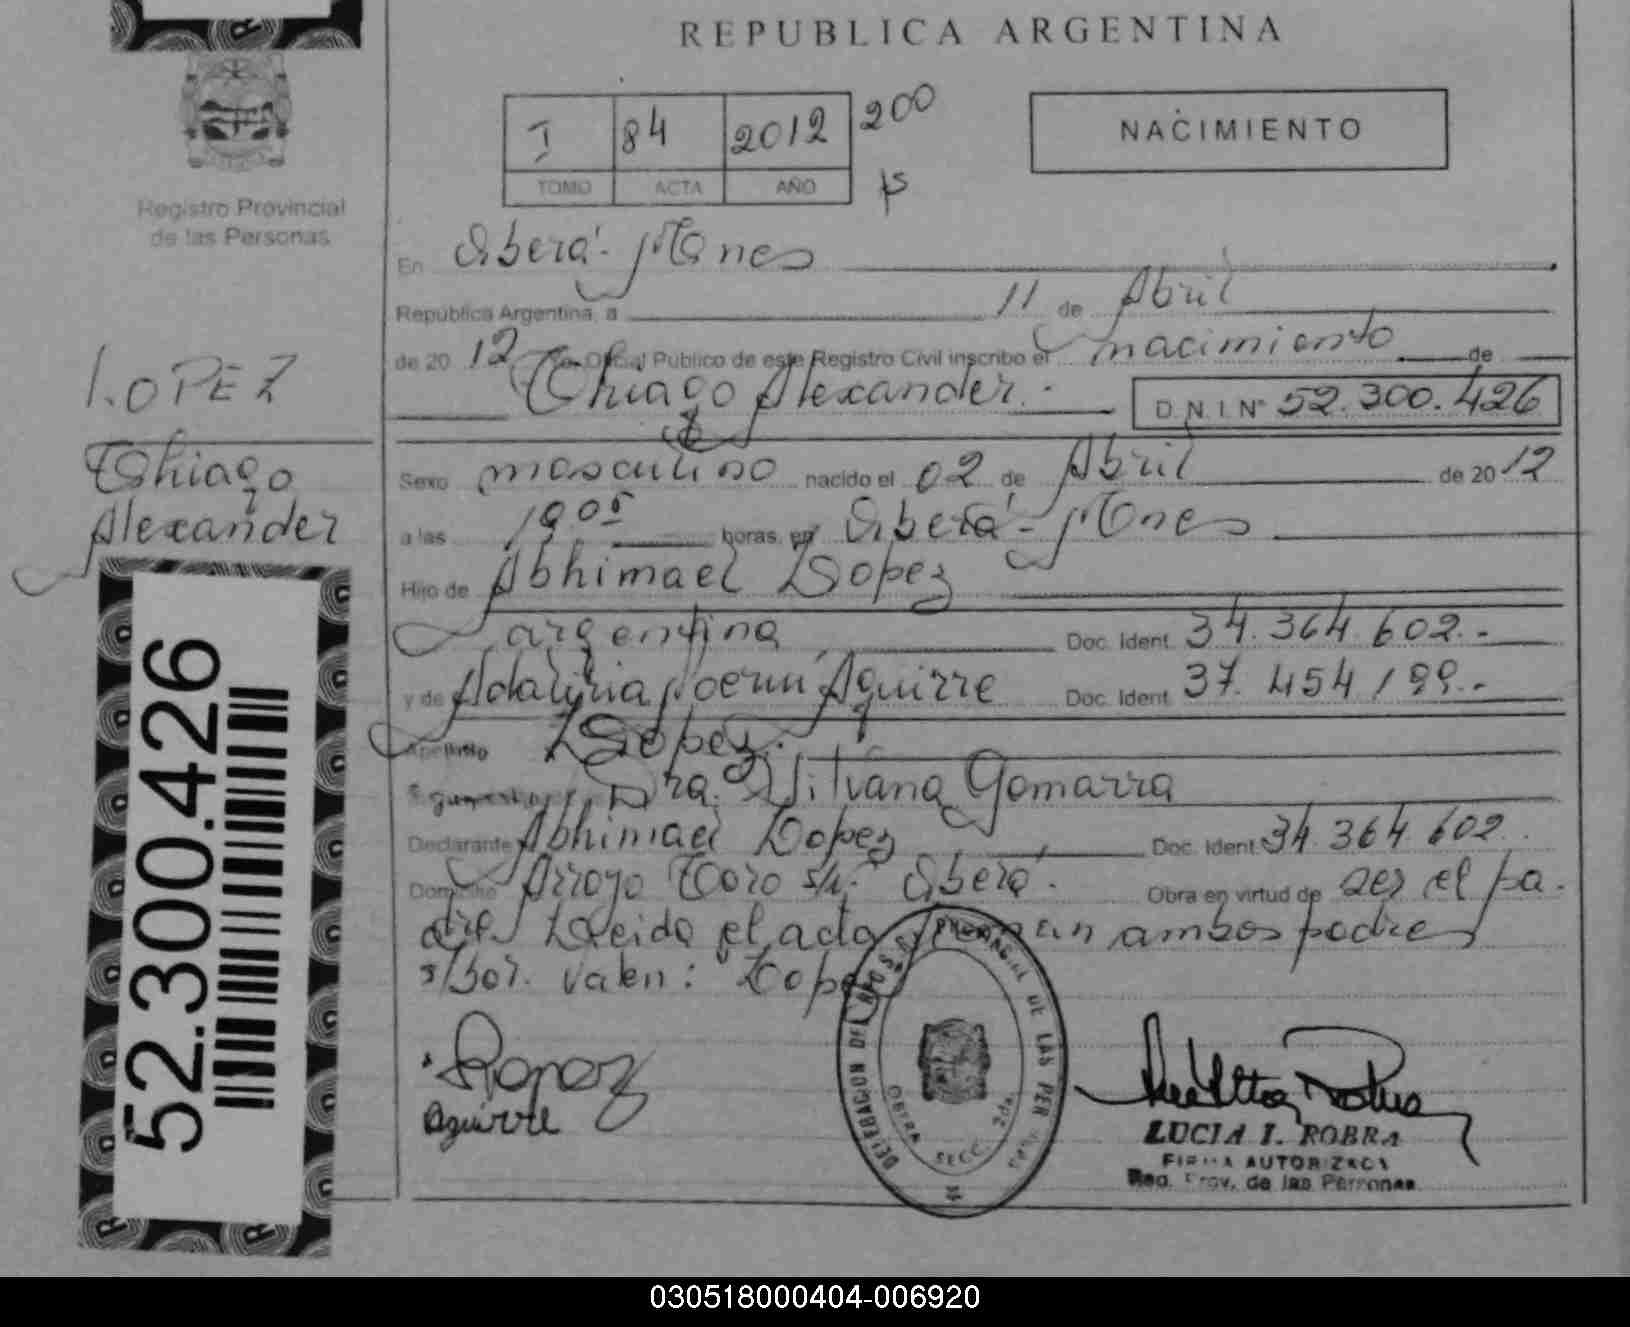 REPUBLICA ARGENTINA
I 84 2012 200
TOMO ACTA AÑO
NACIMIENTO
Registro Provincial
de las Personas
En Oberá - Mnes
República Argentina, a 11 de Abril
de 20 12 Yo, Oficial Público de este Registro Civil inscribo el nacimiento de
Thiago Alexander.- D.N.I Nº 52.300.426
LOPEZ
Thiago
Alexander
Sexo masculino nacido el 02 de Abril de 20 12
a las 19 05 horas, en Oberá - Mnes
Hijo de Abhimael Lopez
argentina Doc. Ident. 34.364.602.-
y de Noemí Aguirre Doc. Ident. 37.454.199.-
Apellido Lopez.
Dra. Viviana Gomarra
Declarante Abhimael Lopez Doc. Ident. 34.364.602.
Domicilio Arroyo Toro s/n. Oberá. Obra en virtud de ser el pa-
dre Leida el acta firman ambos padres
s/bor. Valen: Lopez
Lopez
Aguirre
DELEGACION DEL REG. PROVINCIAL DE LAS PERSONAS
OBERA SECC. 2da.
LUCIA I. ROBRA
FIRMA AUTORIZADA
Reg. Prov. de las Personas
52.300.426
030518000404-006920